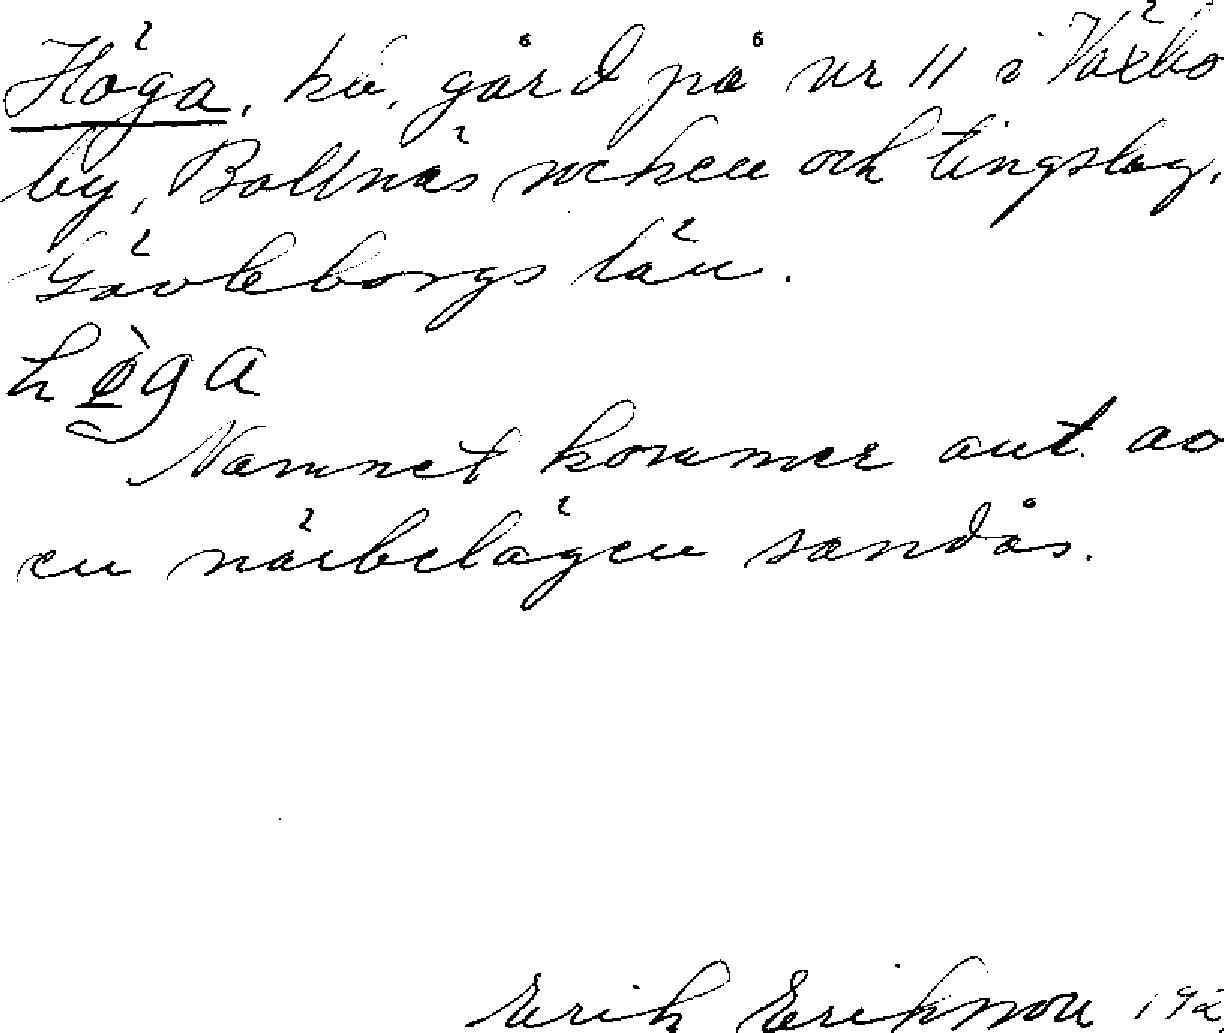 Höga, hö, gård på nr 11 i Växbo
by, Bollnäs socken och tingslag,
Gävleborgs län.
hø̀ga
Namnet kommer ant. av
en närbelägen sandås.
Erik Erikson 192